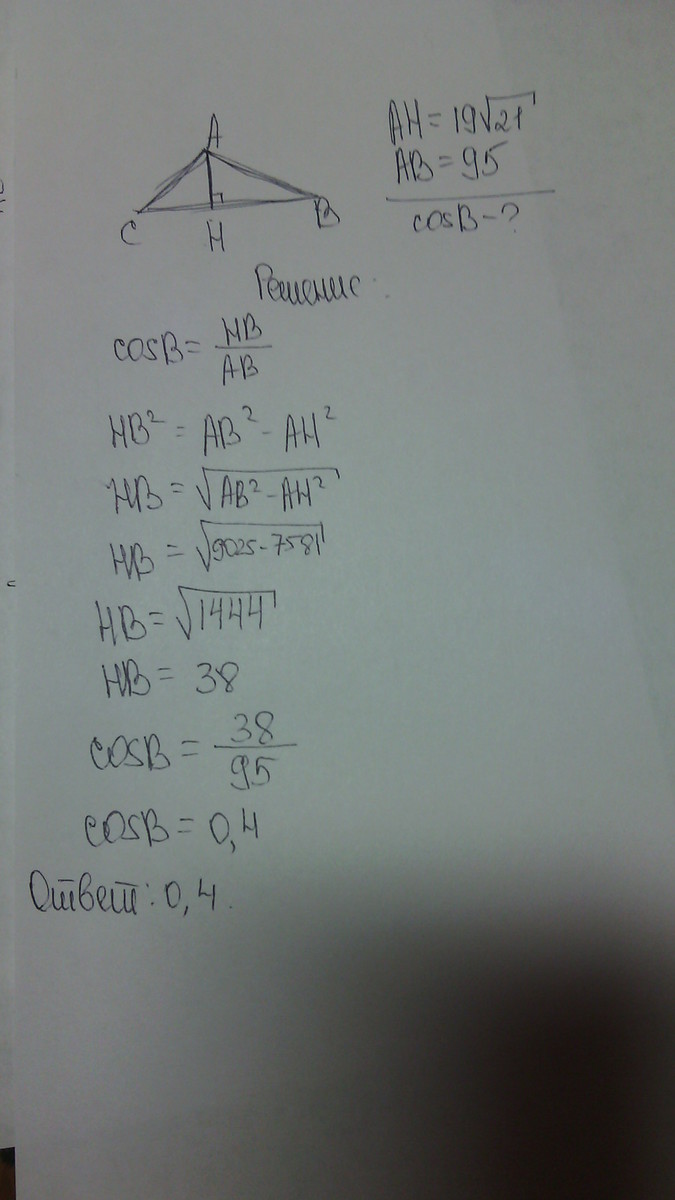 A
C
H
B
AH = 19√21
AB = 95
cosB - ?
Решение:
cosB = HB/AB
HB² = AB² - AH²
HB = √(AB² - AH²)
HB = √(9025 - 7581)
HB = √1444
HB = 38
cosB = 38/95
cosB = 0,4
Ответ: 0,4.